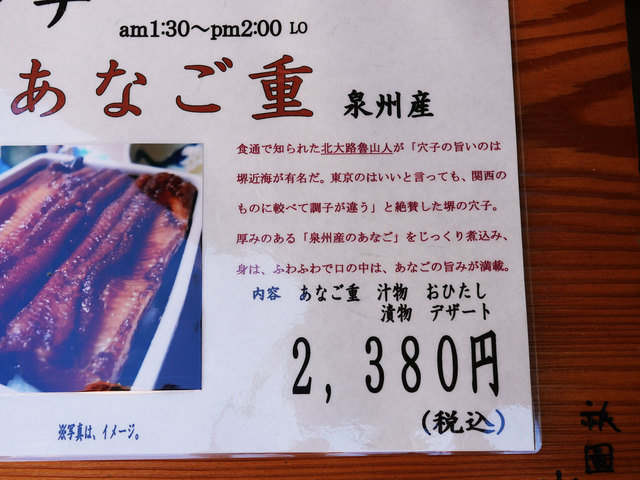 am1:30~pm2:00 LO
あなご重 泉州産
食通で知られた北大路魯山人が「穴子の旨いのは
堺近海が有名だ。東京のはいいと言っても、関西の
ものに較べて調子が違う」と絶賛した堺の穴子。
厚みのある「泉州産のあなご」をじっくり煮込み、
身は、ふわふわで口の中は、あなごの旨みが満載。
内容 あなご重 汁物 おひたし
漬物 デザート
2,380円
(税込)
※写真は、イメージ。
祇園